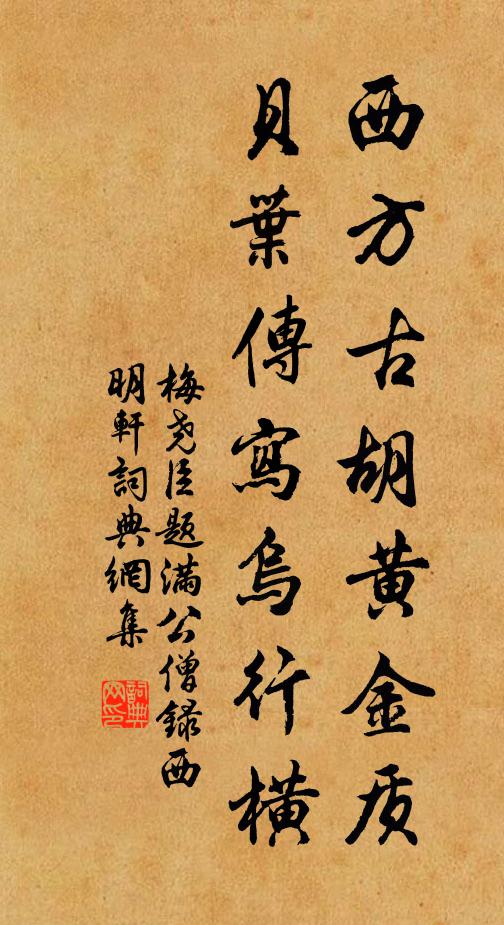 西方古胡黄金质
貝葉傳寫烏行横
梅尧臣题满公僧録西
明軒詞典網集
詞典网印